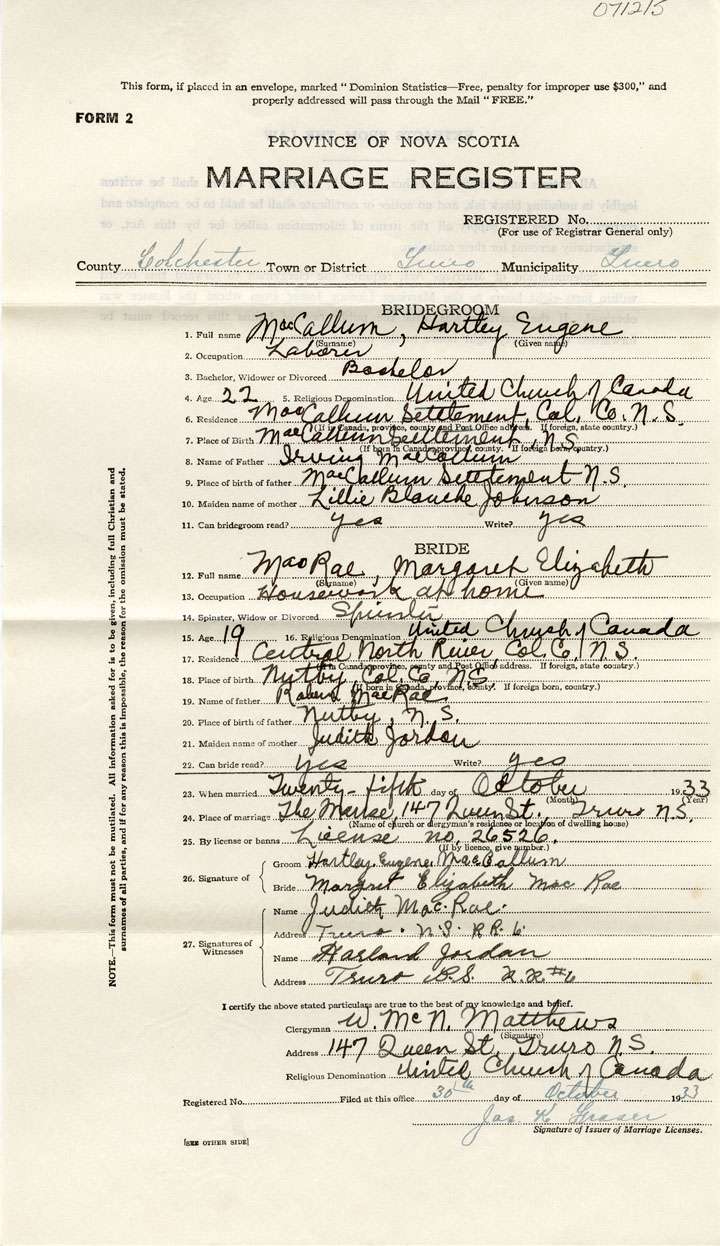 071215
This form, if placed in an envelope, marked "Dominion Statistics—Free, penalty for improper use $300," and
properly addressed will pass through the Mail "FREE."
FORM 2
PROVINCE OF NOVA SCOTIA
MARRIAGE REGISTER
REGISTERED No.
(For use of Registrar General only)
County Colchester Town or District Truro Municipality Truro
BRIDEGROOM
1. Full name MacCallum, Hartley Eugene
(Surname) (Given name)
2. Occupation Laborer
3. Bachelor, Widower or Divorced Bachelor
4. Age 22 5. Religious Denomination United Church of Canada
6. Residence MacCallum Settlement, Col. Co. N.S.
(If in Canada, province, county and Post Office address. If foreign, state country.)
7. Place of Birth MacCallum Settlement, N.S.
(If born in Canada, province, county. If foreign born, country.)
8. Name of Father Irving MacCallum
9. Place of birth of father MacCallum Settlement N.S.
10. Maiden name of mother Lillie Blanche Johnson
11. Can bridegroom read? yes Write? yes
BRIDE
12. Full name MacRae, Margaret Elizabeth
(Surname) (Given name)
13. Occupation Housework at home
14. Spinster, Widow or Divorced Spinster
15. Age 19 16. Religious Denomination United Church of Canada
17. Residence Central North River, Col. Co. N.S.
(If in Canada, province, county and Post Office address. If foreign, state country.)
18. Place of birth Nutby, Col. Co. N.S.
(If born in Canada, province, county. If foreign born, country.)
19. Name of father Robert MacRae
20. Place of birth of father Nutby, N.S.
21. Maiden name of mother Judith Jordan
22. Can bride read? yes Write? yes
23. When married Twenty-fifth day of October 1933
(Month) (Year)
24. Place of marriage The Manse, 147 Queen St., Truro N.S.
(Name of church or clergyman's residence or location of dwelling house)
25. By license or banns License no. 26526.
(If by licence, give number.)
26. Signature of
Groom Hartley Eugene MacCallum
Bride Margret Elizabeth Mac Rae
27. Signatures of Witnesses
Name Judith MacRae.
Address Truro. N.S. R.R. 6
Name Harland Jordan
Address Truro N.S. R.R #6
I certify the above stated particulars are true to the best of my knowledge and belief.
Clergyman W. McN. Matthews
(Signature)
Address 147 Queen St, Truro N.S.
Religious Denomination United Church of Canada
Registered No. Filed at this office 30th day of October 1933
Jas K Fraser
Signature of Issuer of Marriage Licenses.
[SEE OTHER SIDE]
NOTE.—This form must not be mutilated. All information asked for is to be given, including full Christian and
surnames of all parties, and if for any reason this is impossible, the reason for the omission must be stated.